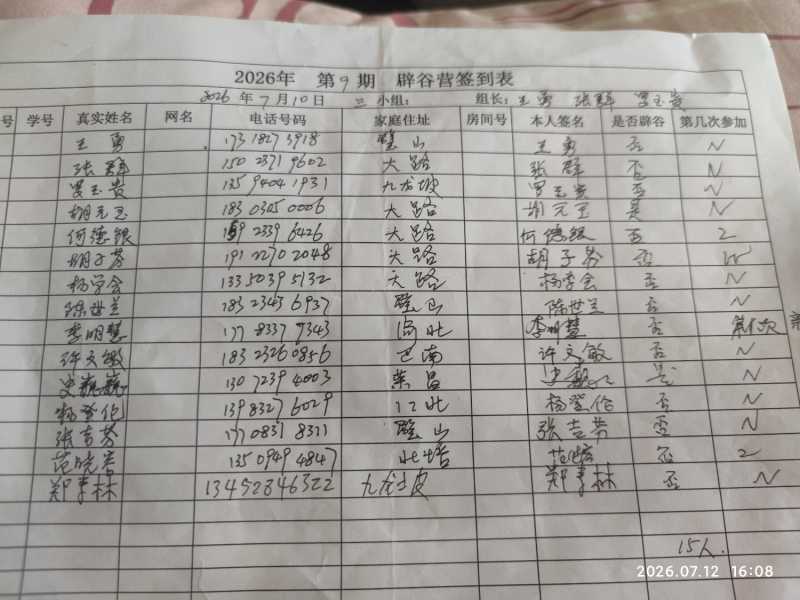 2026年 第9期 辟谷营签到表
2026年7月10日 三小组: 组长: 王勇 张群 罗玉贵
号 学号 真实姓名 网名 电话号码 家庭住址 房间号 本人签名 是否辟谷 第几次参加
王勇 173 1827 3918 璧山 王勇 否 N
张群 150 2371 9602 大路 张群 否 N
罗玉贵 135 9404 1931 九龙坡 罗玉贵 否 N
胡元玉 183 0305 0006 大路 胡元玉 N
何德银 2339 6426 大路 何德银 否 2
胡子芬 191 2270 2048 大路 胡子芬 否
杨学会 133 5039 5132 大路 杨学会 否 N
陈世兰 183 2343 6937 璧山 陈世兰 否 N
李明慧 177 8337 9343 李明慧 否
许文敏 183 2326 0856 巴南 许文敏 否 N
史巍巍 130 7239 4003 荣昌 是 N
杨登伦 139 8327 6029 江北 杨登伦 否 N
张吉芬 177 0837 8311 璧山 张吉芬 否 N
135 0949 4847 北培 否 2
郑季林 13452846322 九龙坡 郑季林 否 N
15人.
2026.07.12 16:08